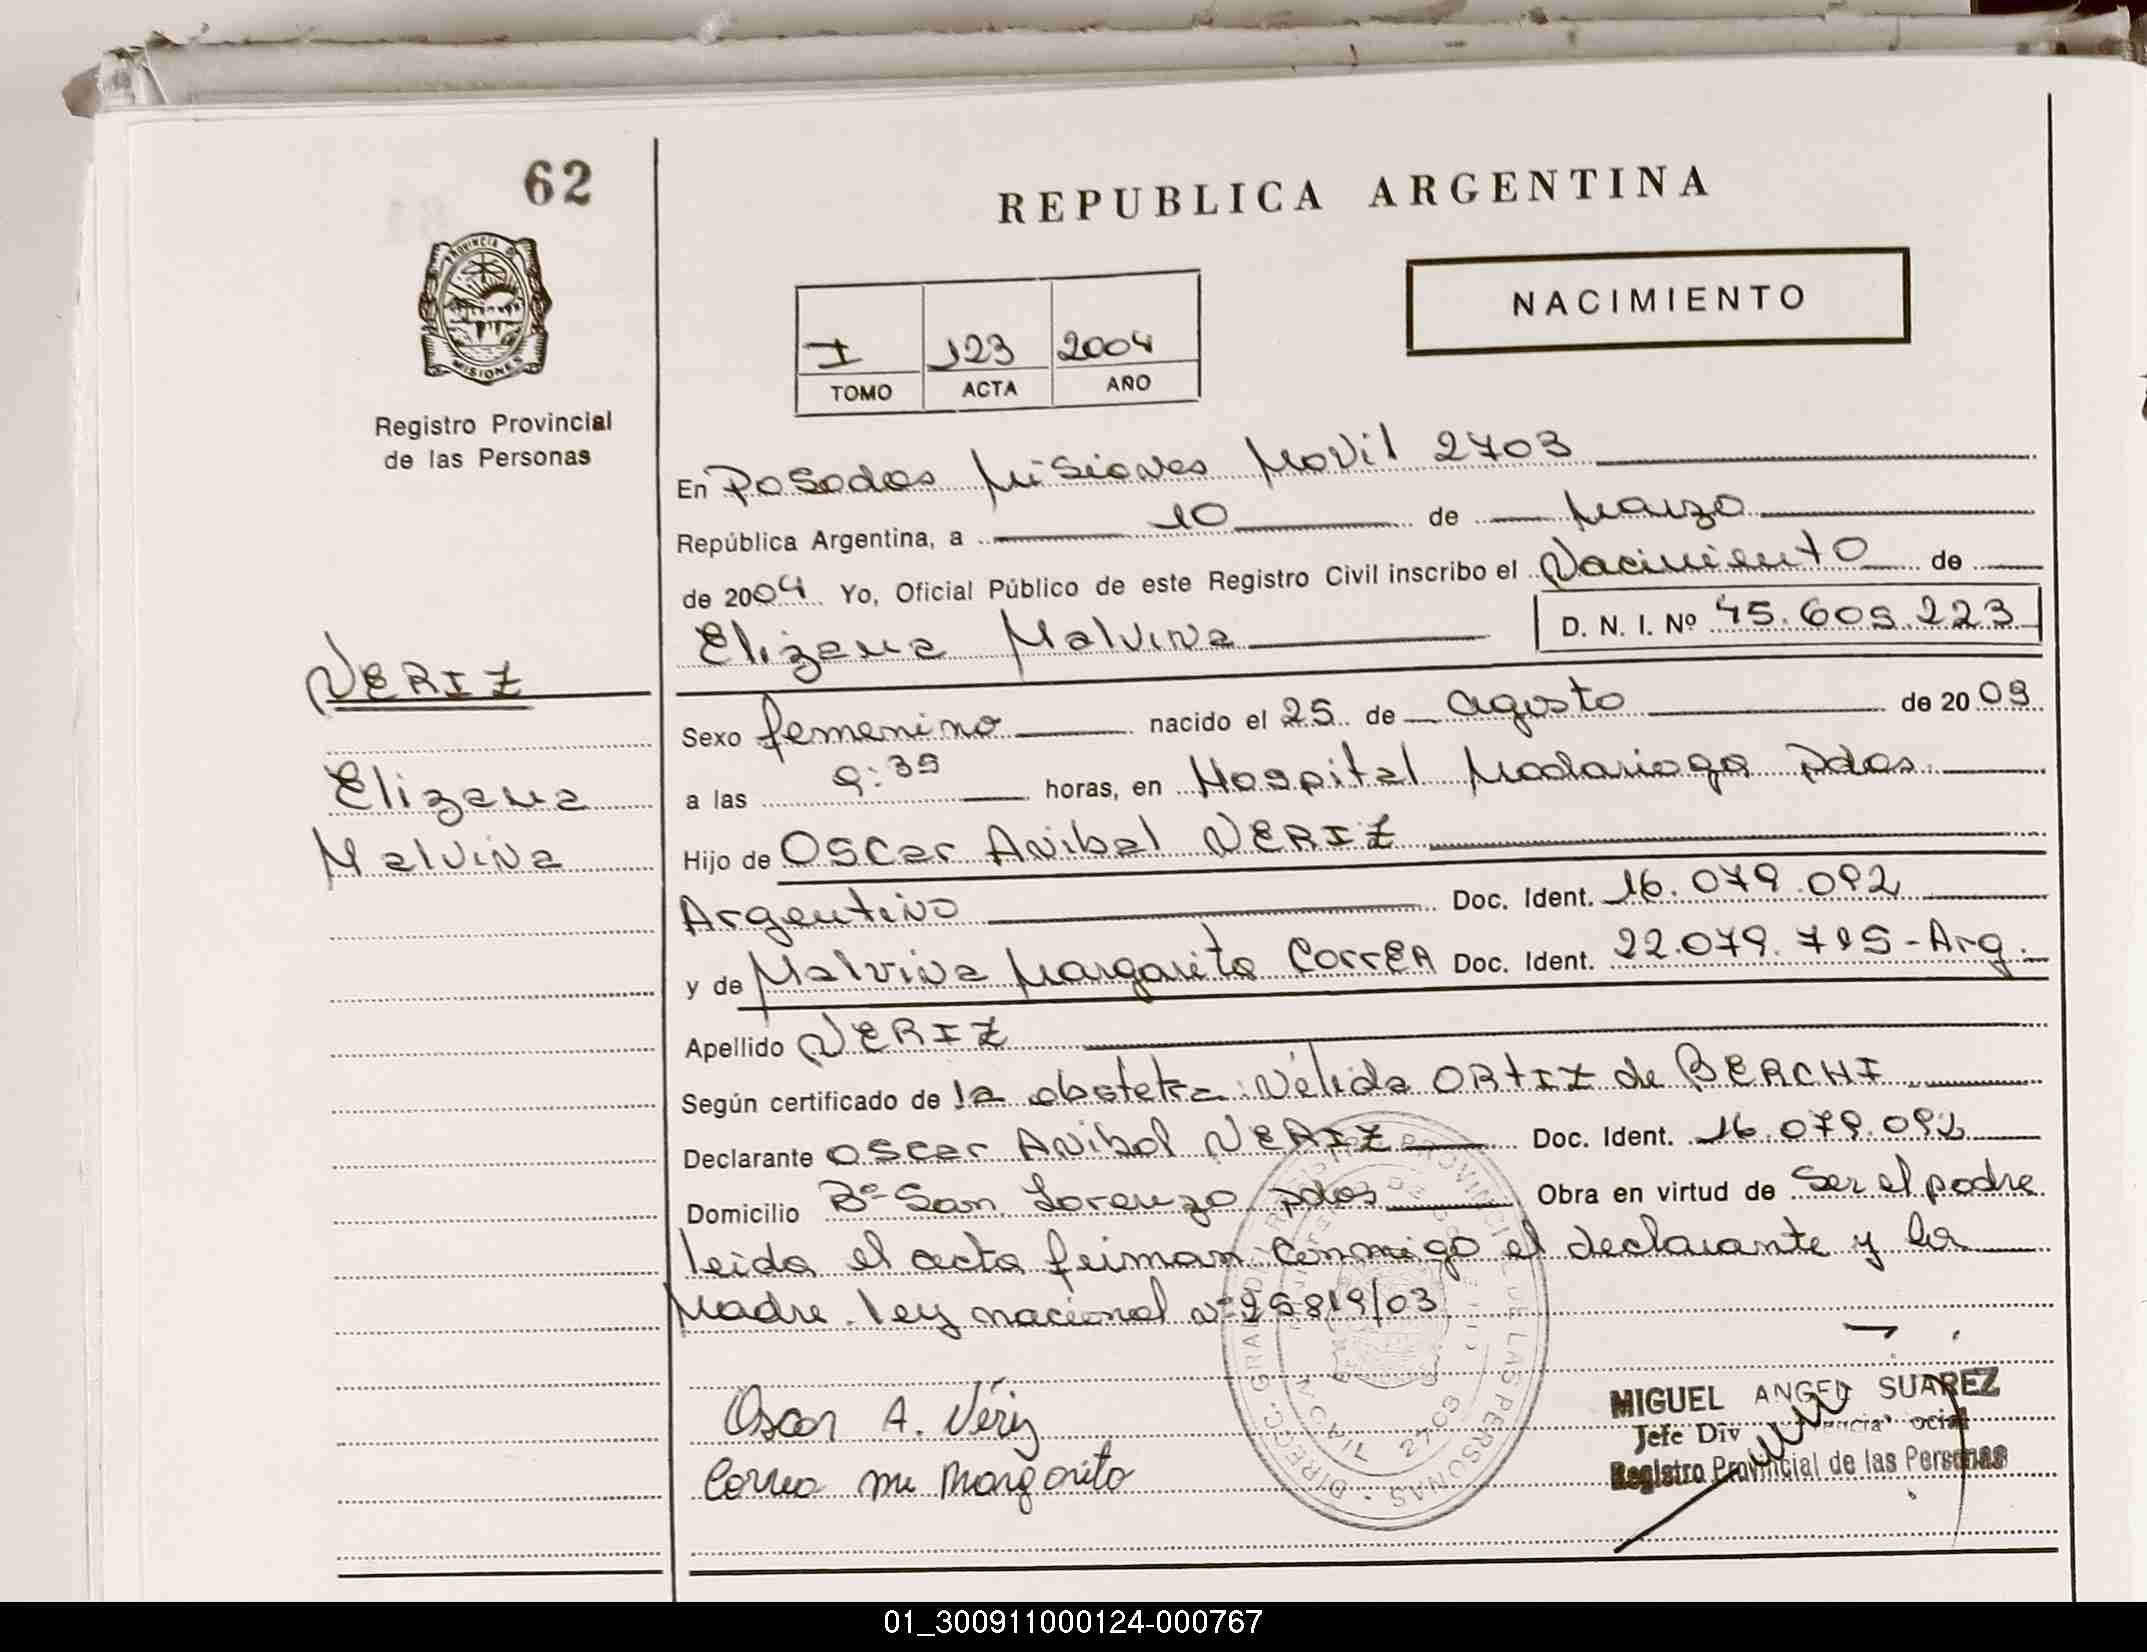 62
PROVINCIA DE
MISIONES
Registro Provincial
de las Personas
REPUBLICA ARGENTINA
NACIMIENTO
I 123 2004
TOMO ACTA AÑO
En Posadas Misiones Movil 2703
República Argentina, a 10 de Marzo
de 2004 Yo, Oficial Público de este Registro Civil inscribo el Nacimiento de
Elizana Malvina D. N. I. Nº 45.605.223
NERIZ
Elizana
Malvina
Sexo femenino nacido el 25 de agosto de 2003
a las 9:35 horas, en Hospital Madariaga Pdas
Hijo de Oscar Anibal NERIZ
Argentino Doc. Ident. 16.079.092
y de Malvina Margarita CorrEA Doc. Ident. 22.079.795-Arg.
Apellido NERIZ
Según certificado de la obstetra Nélida ORtIZ de BERCHI
Declarante Oscar Anibal NERIZ Doc. Ident. 16.079.092
Domicilio Bº San Lorenzo Pdas Obra en virtud de Ser el padre
leida el acta feiman conmigo el declarante y la
Madre. ley nacional nº 25819/03
Oscar A. Nériz
Correa Margarita
MIGUEL ANGEL SUAREZ
Jefe Div
Registro Provincial de las Personas
REGISTRO PROVINCIAL DE LAS PERSONAS
2703
01_300911000124-000767